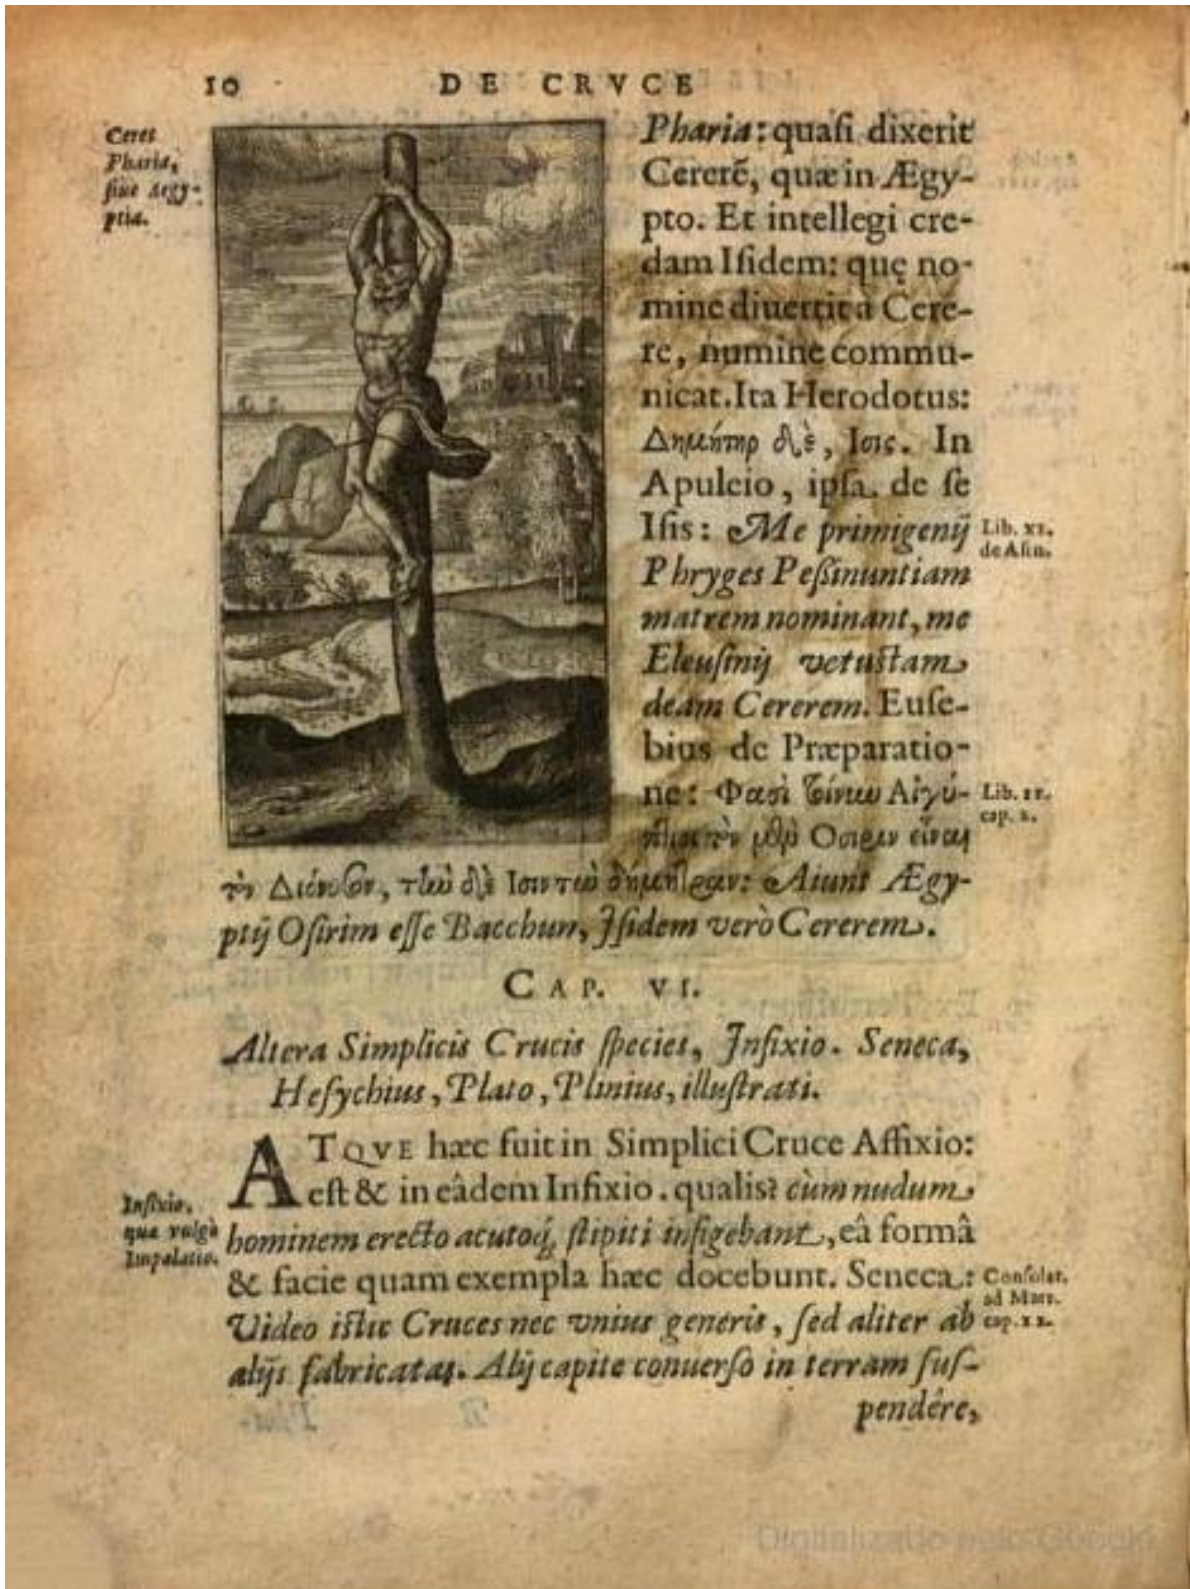 10 DE CRVCE
Ceres
Pharia,
siue Aegy-
ptia.
Pharia: quasi dixerit
Cererē, quæ in Ægy-
pto. Et intellegi cre-
dam Isidem: quę no-
mine diuertit a Cere-
re, numine commu-
nicat. Ita Herodotus:
Δημήτηρ δὲ, Ισις. In
Apuleio, ipsa de se
Isis: Me primigenij
Lib. XI.
de Asin.
Phryges Peßinuntiam
matrem nominant, me
Eleusinij vetustam
deam Cererem. Euse-
bius de Præparatio-
ne: Φασὶ Αἰγύ-
Lib. II.
cap. 2.
τὸν μὲν Οσιριν εἶναι
τὸν Διόνυσον, τὴν δὲ Ισιν τὴν δήμητραν: Aiunt Ægy-
ptij Osirim esse Bacchum, Isidem verò Cererem.
CAP. VI.
Altera Simplicis Crucis species, Infixio. Seneca,
Hesychius, Plato, Plinius, illustrati.
ATQVE hæc fuit in Simplici Cruce Affixio:
est & in eâdem Infixio. qualis? cùm nudum
Infixio,
quæ vulgò
Impalatio.
hominem erecto acutoq́; stipiti infigebant, eâ formâ
& facie quam exempla hæc docebunt. Seneca:
Consolat.
ad Marc.
cap. XX.
Video istic Cruces nec vnius generis, sed aliter ab
alijs fabricatas. Alij capite conuerso in terram sus-
pendêre,
Digitalizado pelo Google